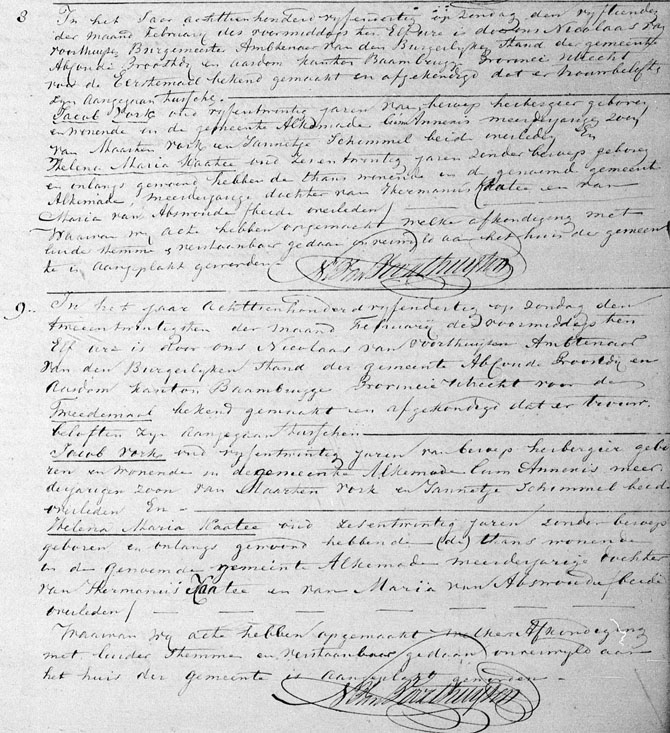 8 In het Jaar achttienhonderd vyfendertig op zondag den vyftienden
der maand February des voormiddags ten Elf ure is door ons Nicolaas van
voorthuysen Burgemeester Ambtenaar van den Burgerlyken Stand der gemeente
Abcoude Proostdy en aasdom kanton Baambrugge Provincie utrecht
voor de Eerstemaal bekend gemaakt en afgekondigd dat er trouwbeloften
zyn aangegaan tusschen
Jacob Vork oud vyfentwintig jaren van beroep herbergier geboren
en wonende in de gemeente Alkemade Cum Annexis meerderjarige zoon
van Maarten vork en Jannetje Schimmel beide overleden En
Thelena Maria Kaatee oud zesentwintig jaren zonder beroep geboren
en onlangs gewoond hebbende thans wonende in de genoemde gemeente
Alkemade, meerderjarige dochter van Thermanus Kaatee en van
Maria van Abswoude beide overleden /
Waarvan wy acte hebben opgemaakt welke afkondiging met
luide stemme & verstaanbaar gedaan en is aan het huis der gemeen
te is aangeplakt geworden -
N. Van Voorthuysen
9.. In het jaar achttienhonderdvyfendertig op zondag den
tweeentwintigsten der maand February des voormiddags ten
Elf ure is door ons Nicolaas van voorthuysen Ambtenaar
van den Burgerlyken Stand der gemeente Abcoude Proostdy en
Aasdom kanton Baambrugge Provincie utrecht voor de
Tweedemaal bekend gemaakt en afgekondigd dat er trouw
beloften zyn aangegaan tusschen
Jacob Vork oud vyfentwintig jaren van beroep herbergier gebo
ren en wonende in de gemeente Alkemade Cum Annexis meer
derjarigen zoon van Maarten vork en Jannetje Schimmel beide
overleden En -
Thelena Maria Kaatee oud zesentwintig jaren zonder beroep
geboren en onlangs gewoond hebbende (de) thans wonende
in de genoemde gemeente Alkemade meerderjarige dochter
van Thermanus Kaatee en van Maria van Abswoude beide
overleden /
Waarvan wy acte hebben opgemaakt welke Afkondiging
met luider Stemme en verstaanbaar gedaan onverwyld aan
het huis der gemeente is aangeplakt geworden -
N. Van Voorthuysen